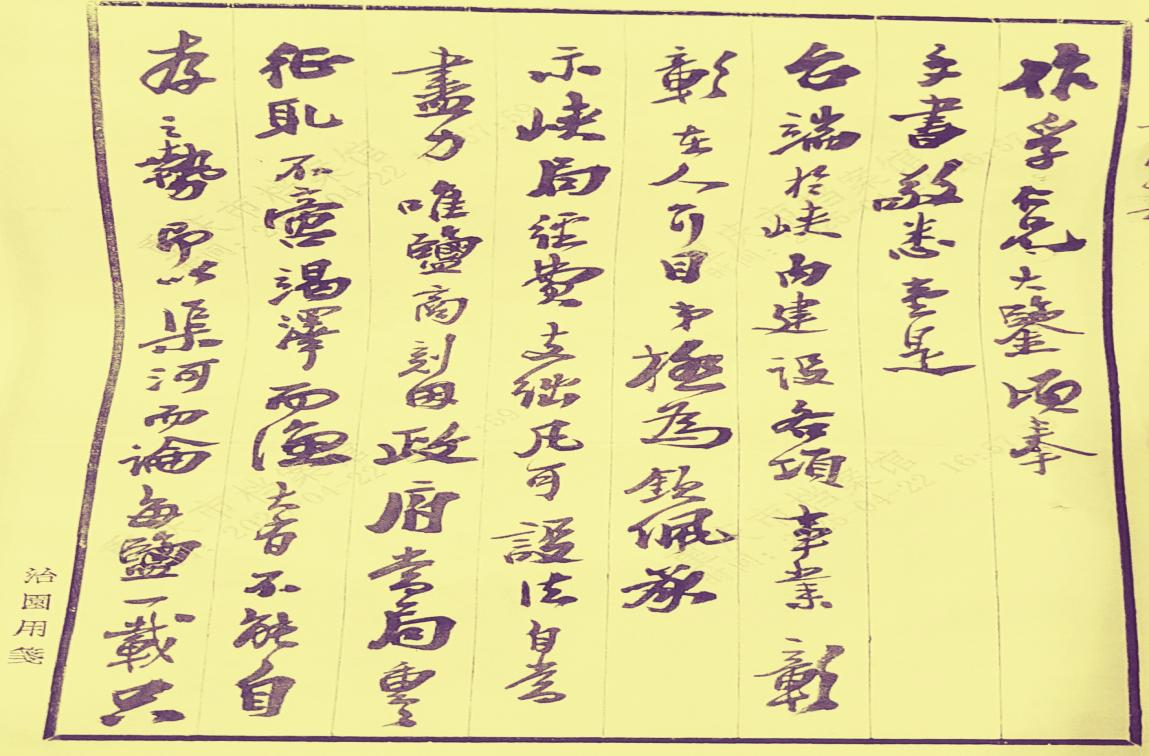 作孚吾兄大鑒頃奉
手書敬悉壹是
台端於峽內建設各項事業彰
彰在人耳目中極為欽佩承
示峽局經費支絀凡可設法自當
盡力唯鹽商刻因政府當局重重
征取不啻竭澤而漁大有不能自
存之勢即以渠河而論每鹽一載只
治園用箋